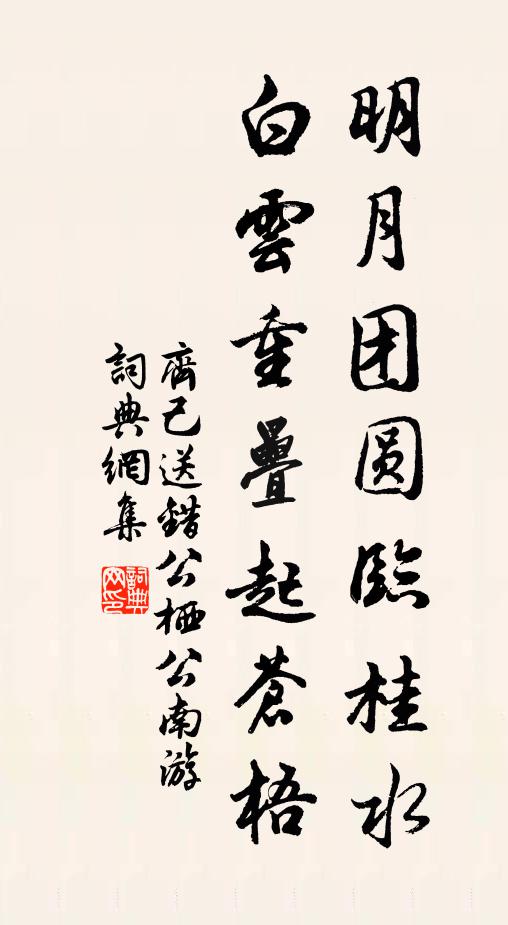 明月团圆臨桂水
白雲重疊起蒼梧
齊己送錯公栖公南游
詞典網集
詞典网印